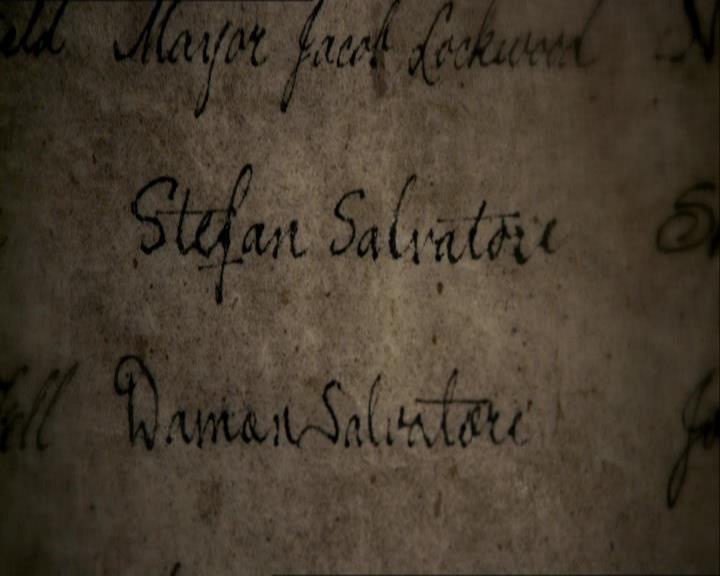 Mayor Jacob Lockwood
Stefan Salvatore
Damon Salvatore